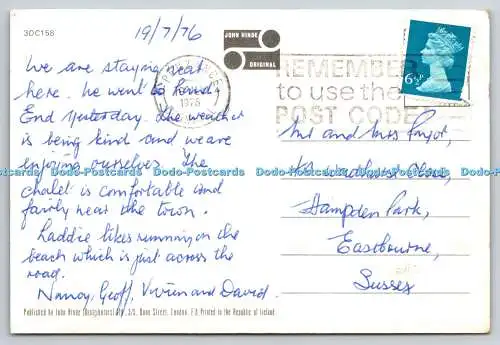 3DC158
19/7/76
JOHN HINDE
ORIGINAL
PENZANCE
1976
REMEMBER
to use the
POST CODE
6½P
We are staying near
here. We went to Land
End yesterday. The weather
is being kind and we are
enjoying ourselves. The
chalet is comfortable and
fairly near the town.
Laddie likes running on the
beach which is just across the
road.
Nancy, Geoff, Vivien and David.
Mr and Mrs
Close,
Hampden Park,
Eastbourne,
Sussex
Published by John Hinde (Distributors) Ltd., Dane Street, London. Printed in the Republic of Ireland.
Dodo-Postcards Dodo-Postcards Dodo-Postcards Dodo-Postcards Dodo-Postcards